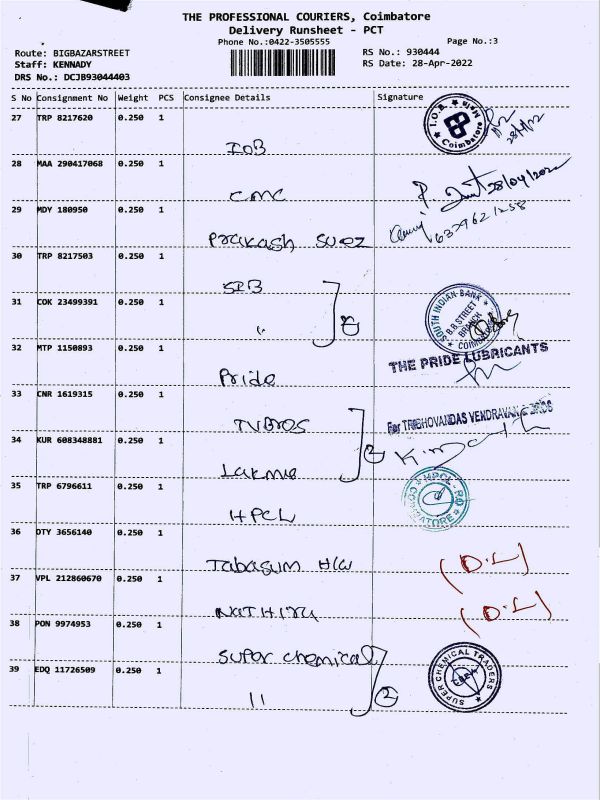 THE PROFESSIONAL COURIERS, Coimbatore
Delivery Runsheet - PCT
Phone No.:0422-3505555
Page No.:3
Route: BIGBAZARSTREET
RS No.: 930444
Staff: KENNADY
RS Date: 28-Apr-2022
DRS No.: DCJB93044403
S No Consignment No Weight PCS Consignee Details Signature
27 TRP 8217620 0.250 1
IOB
I.O.B. Main Coimbatore
28 MAA 290417068 0.250 1
CMC
28/04/2022
29 MDY 180950 0.250 1
Prakash Suez
6379621258
30 TRP 8217503 0.250 1
SIB
31 COK 23499391 0.250 1
" 2
SOUTH INDIAN BANK B.B STREET BRANCH COIMBATORE
32 MTP 1150893 0.250 1
Pride
THE PRIDE LUBRICANTS
33 CNR 1619315 0.250 1
TVBros
For TRIBHOVANDAS VENDRAVAN & BROS
34 KUR 608348881 0.250 1
Lakmie 2
35 TRP 6796611 0.250 1
HPCL
HPCL-RO COIMBATORE
36 DTY 3656140 0.250 1
Tabasum H/W
(D.L)
37 VPL 212860670 0.250 1
(D.L)
38 PON 9974953 0.250 1
Super chemical
39 EDQ 11726509 0.250 1
" 2
SUPER CHEMICAL TRADERS